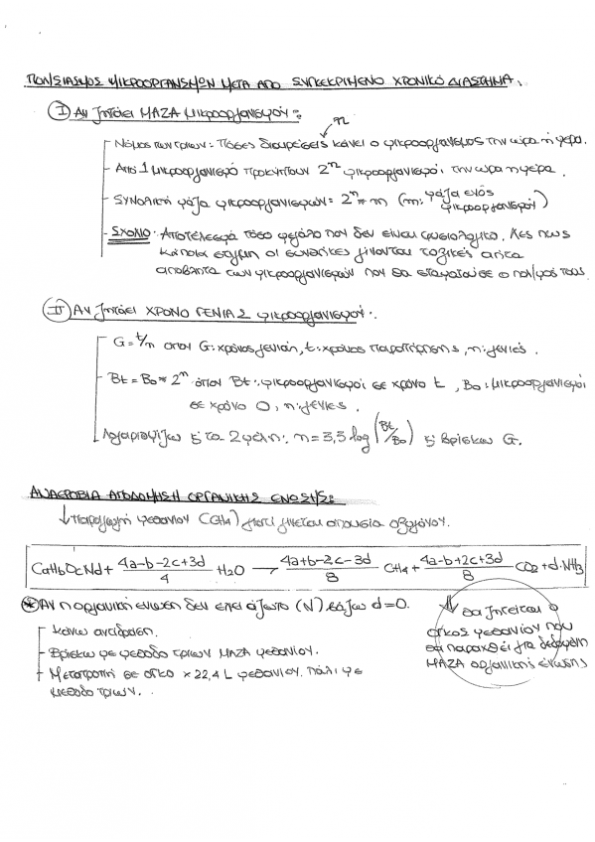 ΠΟΛ/ΣΙΑΣΜΟΣ ΜΙΚΡΟΟΡΓΑΝΙΣΜΩΝ ΜΕΤΑ ΑΠΟ ΣΥΓΚΕΚΡΙΜΕΝΟ ΧΡΟΝΙΚΟ ΔΙΑΣΤΗΜΑ.
Ⓘ Αν ζητάει ΜΑΖΑ μικροοργανισμού:
n
- Νόμος των τριων: Πόσες διαιρέσεις κάνει ο μικροοργανισμος την ώρα ή μέρα.
- Από 1 μικροοργανισμό προκύπτουν 2ⁿ μικροοργανισμοί την ωρα ή μερα.
- ΣΥΝΟΛΙΚΗ μάζα μικροοργανισμών= 2ⁿ * m (m: μάζα ενός
μικροοργανισμού)
- ΣΧΟΛΙΟ: Αποτέλεσμα τόσο μεγάλο που δεν είναι φυσιολογικο. Λες πως
κάποια στιγμη οι συνθήκες γίνονται τοξικές από τα
απόβλητα των μικροοργανισμών που θα σταματούσε ο πολ/μος τους.
ⒾⒾ Αν ζητάει ΧΡΟΝΟ ΓΕΝΙΑΣ μικροοργανισμού:
- G= t/n οπου G: χρόνος γενιάς, t: χρόνος παρατήρησης, n: γενιές.
- Bt = B₀ * 2ⁿ όπου Bt: μικροοργανισμοί σε χρόνο t, B₀: μικροοργανισμοί
σε χρόνο 0, n: γενιες.
- Λογαριθμίζω τα 2 μέλη: n=3,3 log (Bt/B₀) βρίσκω G.
ΑΝΑΕΡΟΒΙΑ ΑΠΟΔΟΜΗΣΗ ΟΡΓΑΝΙΚΗΣ ΕΝΩΣΗΣ:
↓ παραγωγή μεθανίου (CH₄) γιατί γίνεται απουσία οξυγόνου.
CaHbOcNd + (4a-b-2c+3d)/4 H₂O → (4a+b-2c-3d)/8 CH₄ + (4a-b+2c+3d)/8 CO₂ + d·NH₃
* Αν η οργανική ένωση δεν εχει άζωτο (N) βάζω d=0.
- κάνω αντίδραση.
- Βρίσκω με μεθοδο τριων ΜΑΖΑ μεθανίου.
- Μετατροπή σε όγκο × 22,4 L μεθανίου. πάλι με
μεθοδο τριων.
θα ζητείται ο
όγκος μεθανίου που
θα παραχθεί για δεδομένη
ΜΑΖΑ οργανικής ένωσης